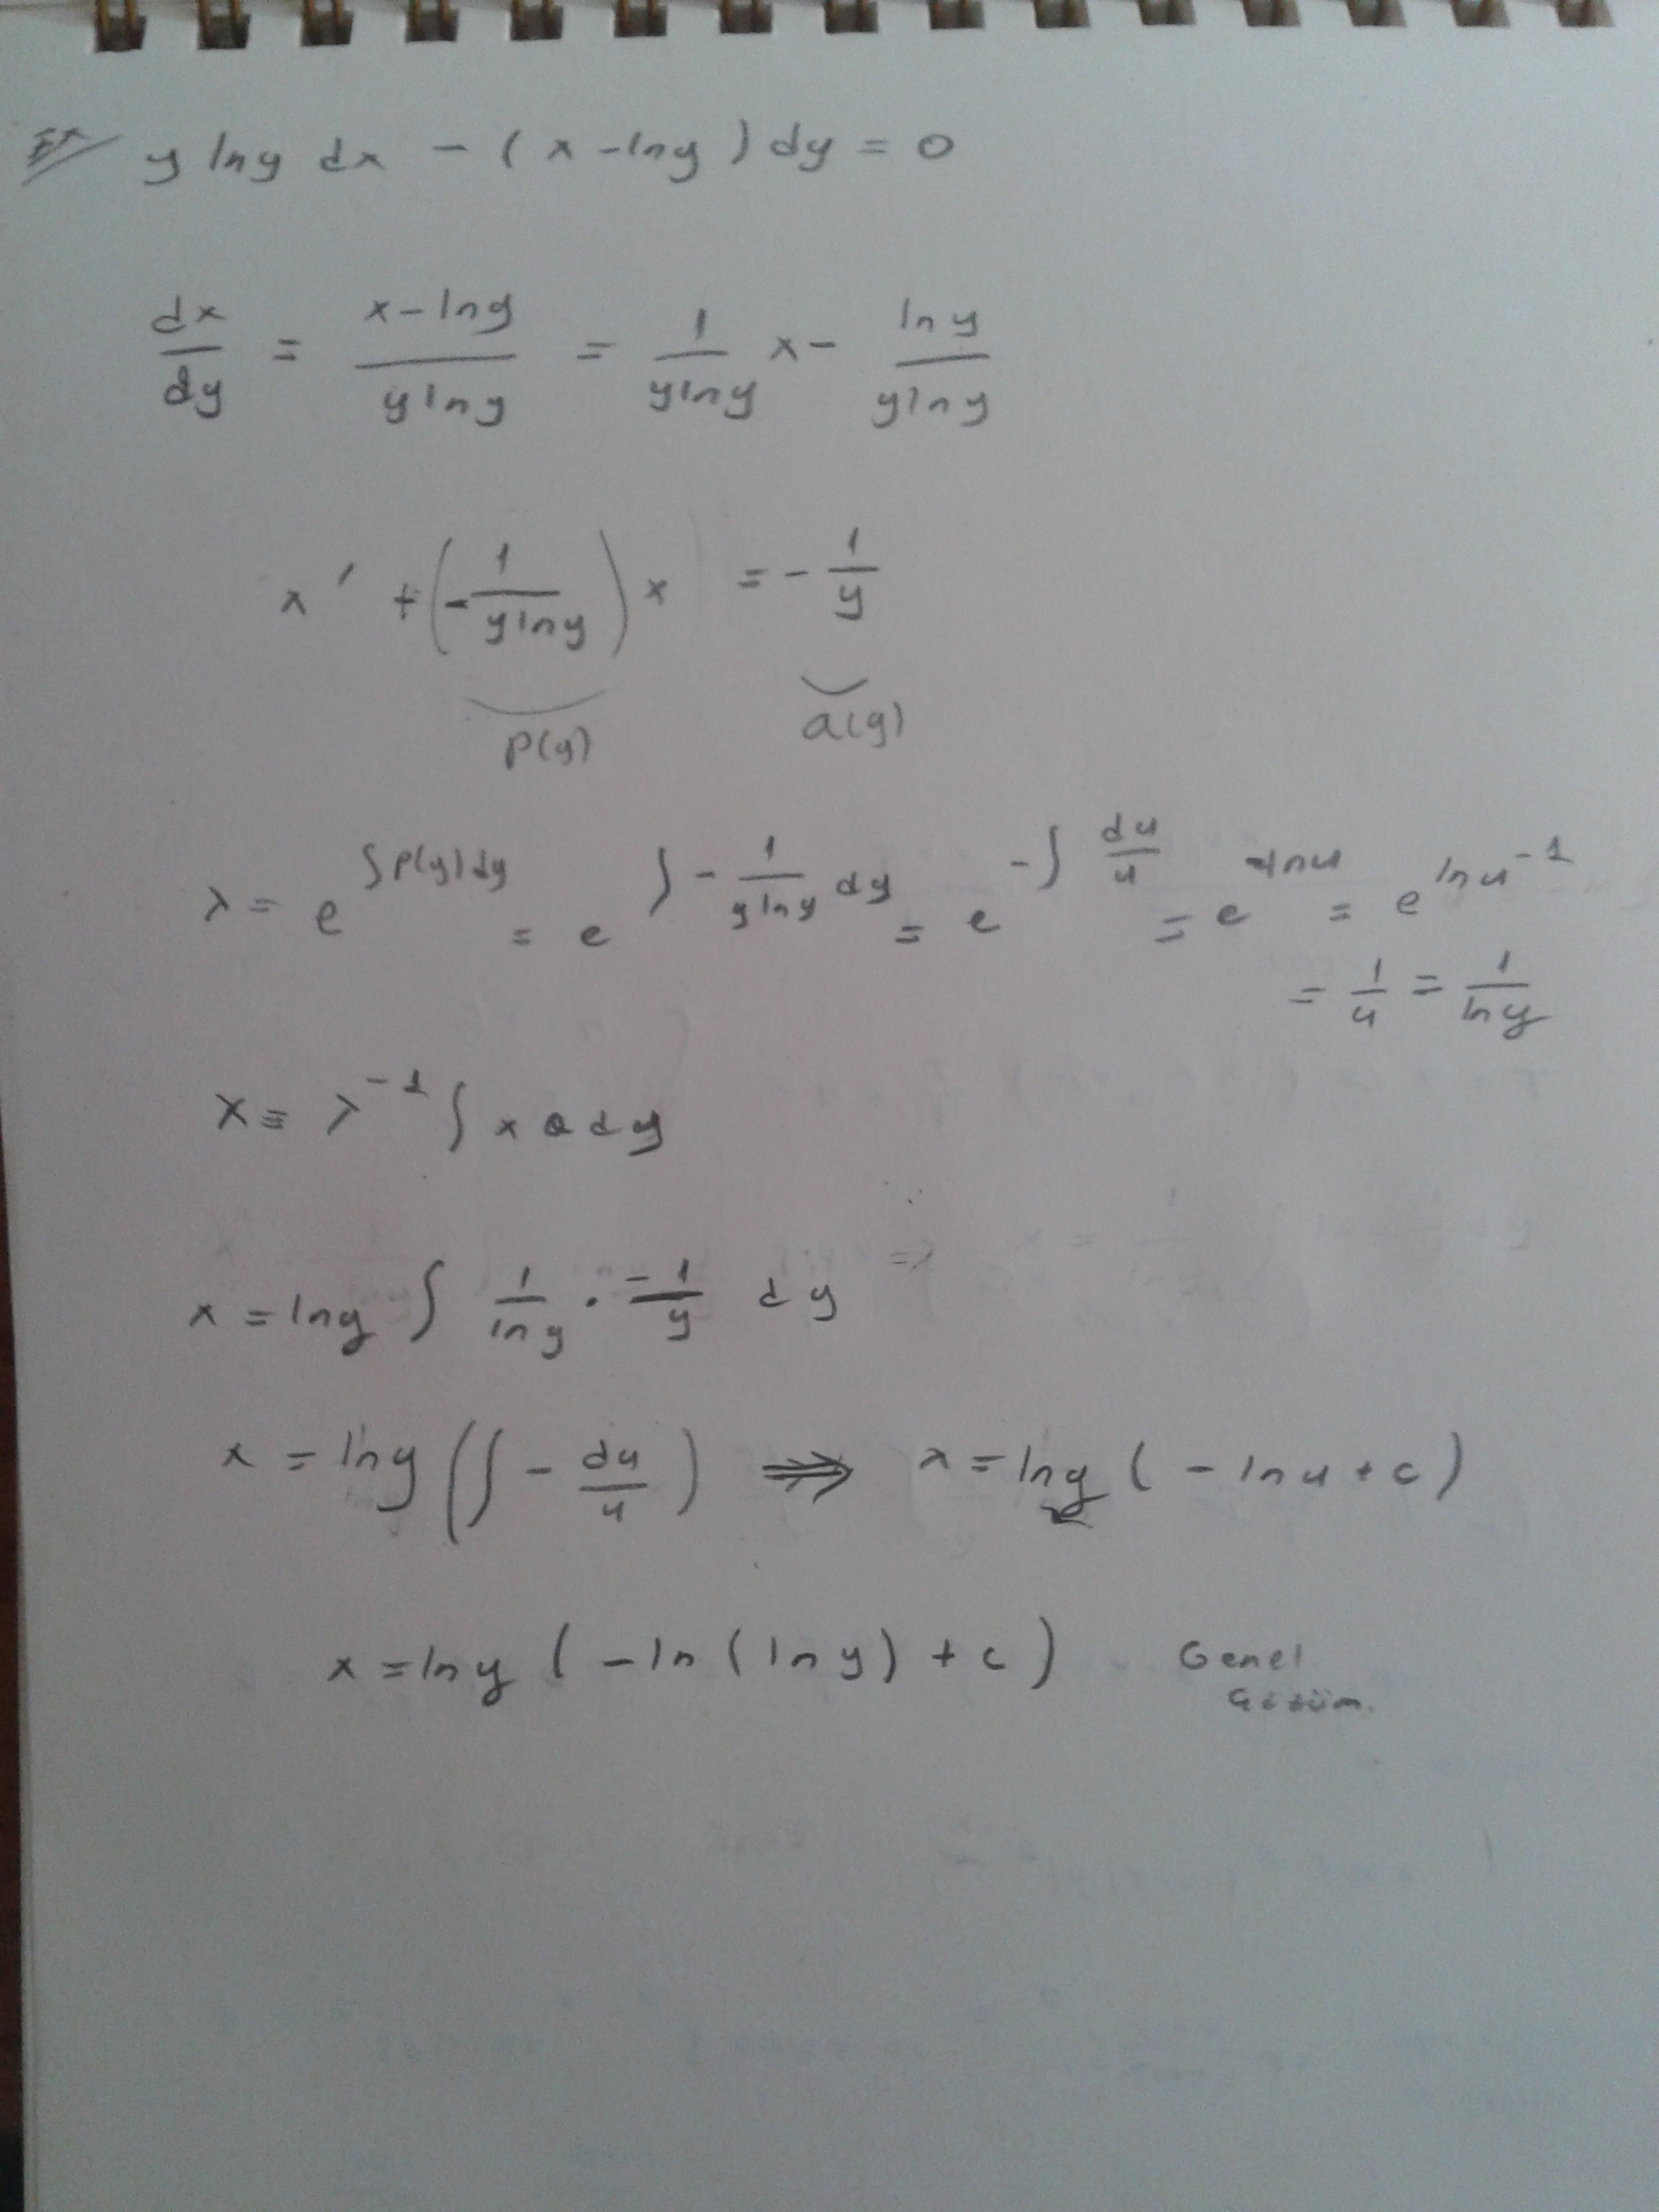 Ex// y lny dx - (x - lny) dy = 0
dx/dy = (x - lny)/(y lny) = 1/(y lny) x - lny/(y lny)
x' + (-1/(y lny)) x = -1/y
P(y) Q(y)
λ = e^(∫P(y)dy) = e^(∫ -1/(y lny) dy) = e^(-∫ du/u) = e^(-lnu) = e^(lnu^-1)
= 1/u = 1/lny
x = λ^-1 ∫ λ Q dy
x = lny ∫ 1/lny · -1/y dy =>
x = lny (∫ - du/u) ⇒ x = lny (-lnu + c)
x = lny (-ln(lny) + c) Genel
Çözüm.